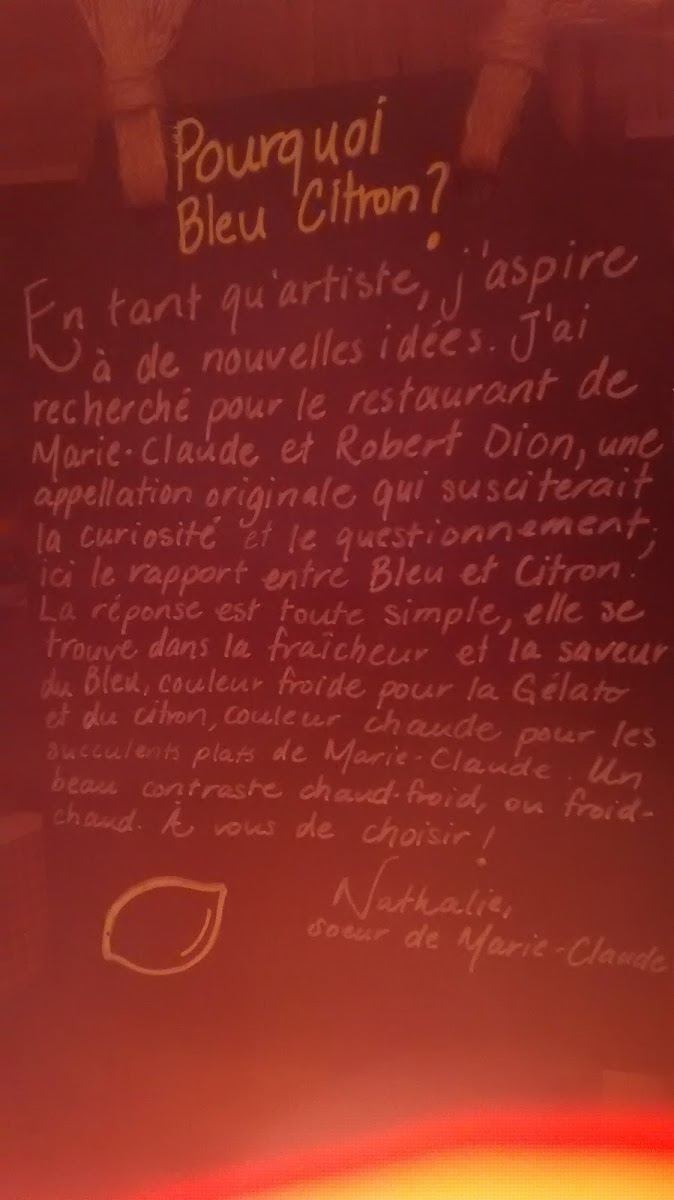 Pourquoi
Bleu Citron?
En tant qu'artiste, j'aspire
à de nouvelles idées. J'ai
recherché pour le restaurant de
Marie-Claude et Robert Dion, une
appellation originale qui susciterait
la curiosité et le questionnement;
ici le rapport entre Bleu et Citron.
La réponse est toute simple, elle se
trouve dans la fraîcheur et la saveur
du Bleu, couleur froide pour la Gélato
et du citron, couleur chaude pour les
succulents plats de Marie-Claude. Un
beau contraste chaud-froid, ou froid-
chaud. À vous de choisir!
Nathalie,
soeur de Marie-Claude